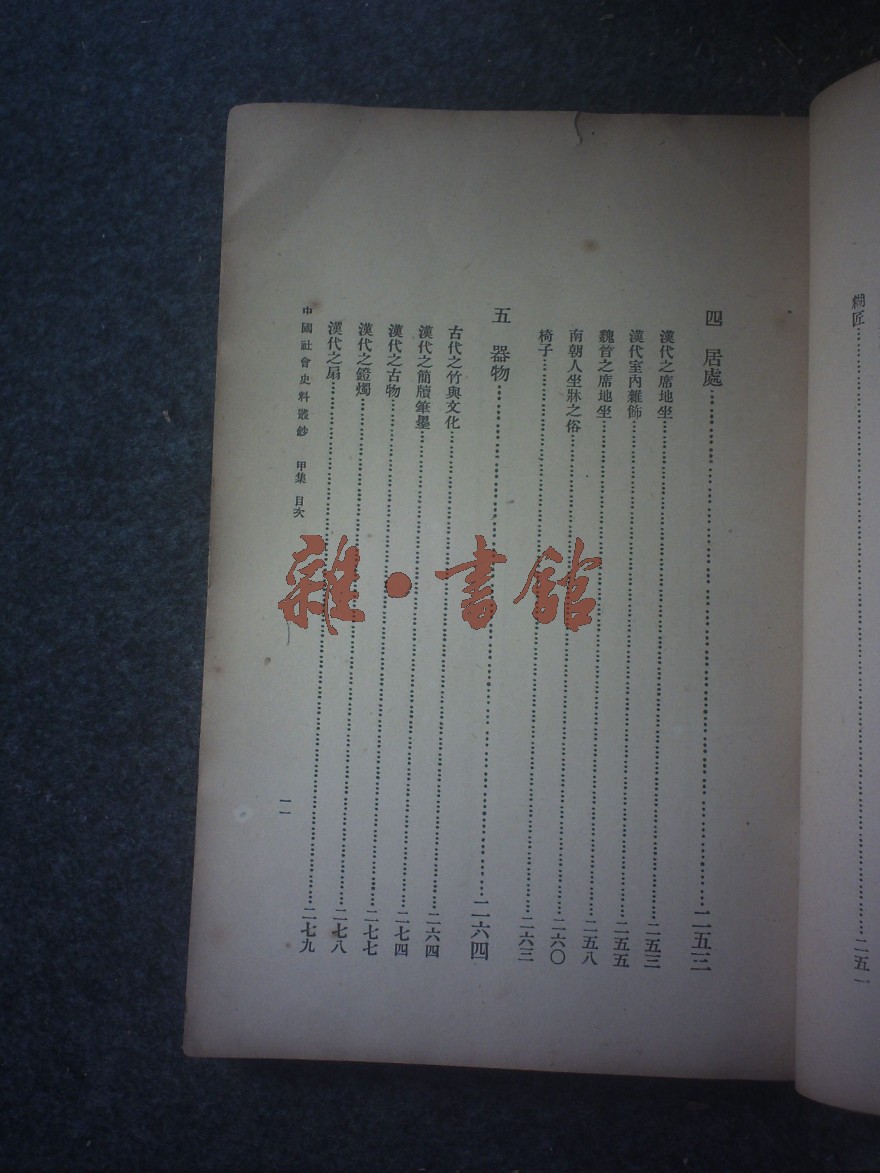 糊匠⋯⋯二五一
四 居處⋯⋯二五三
漢代之席地坐⋯⋯二五三
漢代室內雜飾⋯⋯二五五
魏晉之席地坐⋯⋯二五八
南朝人坐牀之俗⋯⋯二六〇
椅子⋯⋯二六三
五 器物⋯⋯二六四
古代之竹與文化⋯⋯二六四
漢代之簡牘筆墨⋯⋯二七四
漢代之古物⋯⋯二七七
漢代之鐙燭⋯⋯二七八
漢代之扇⋯⋯二七九
中國社會史料叢鈔 甲集 目次
一一
雜·書館